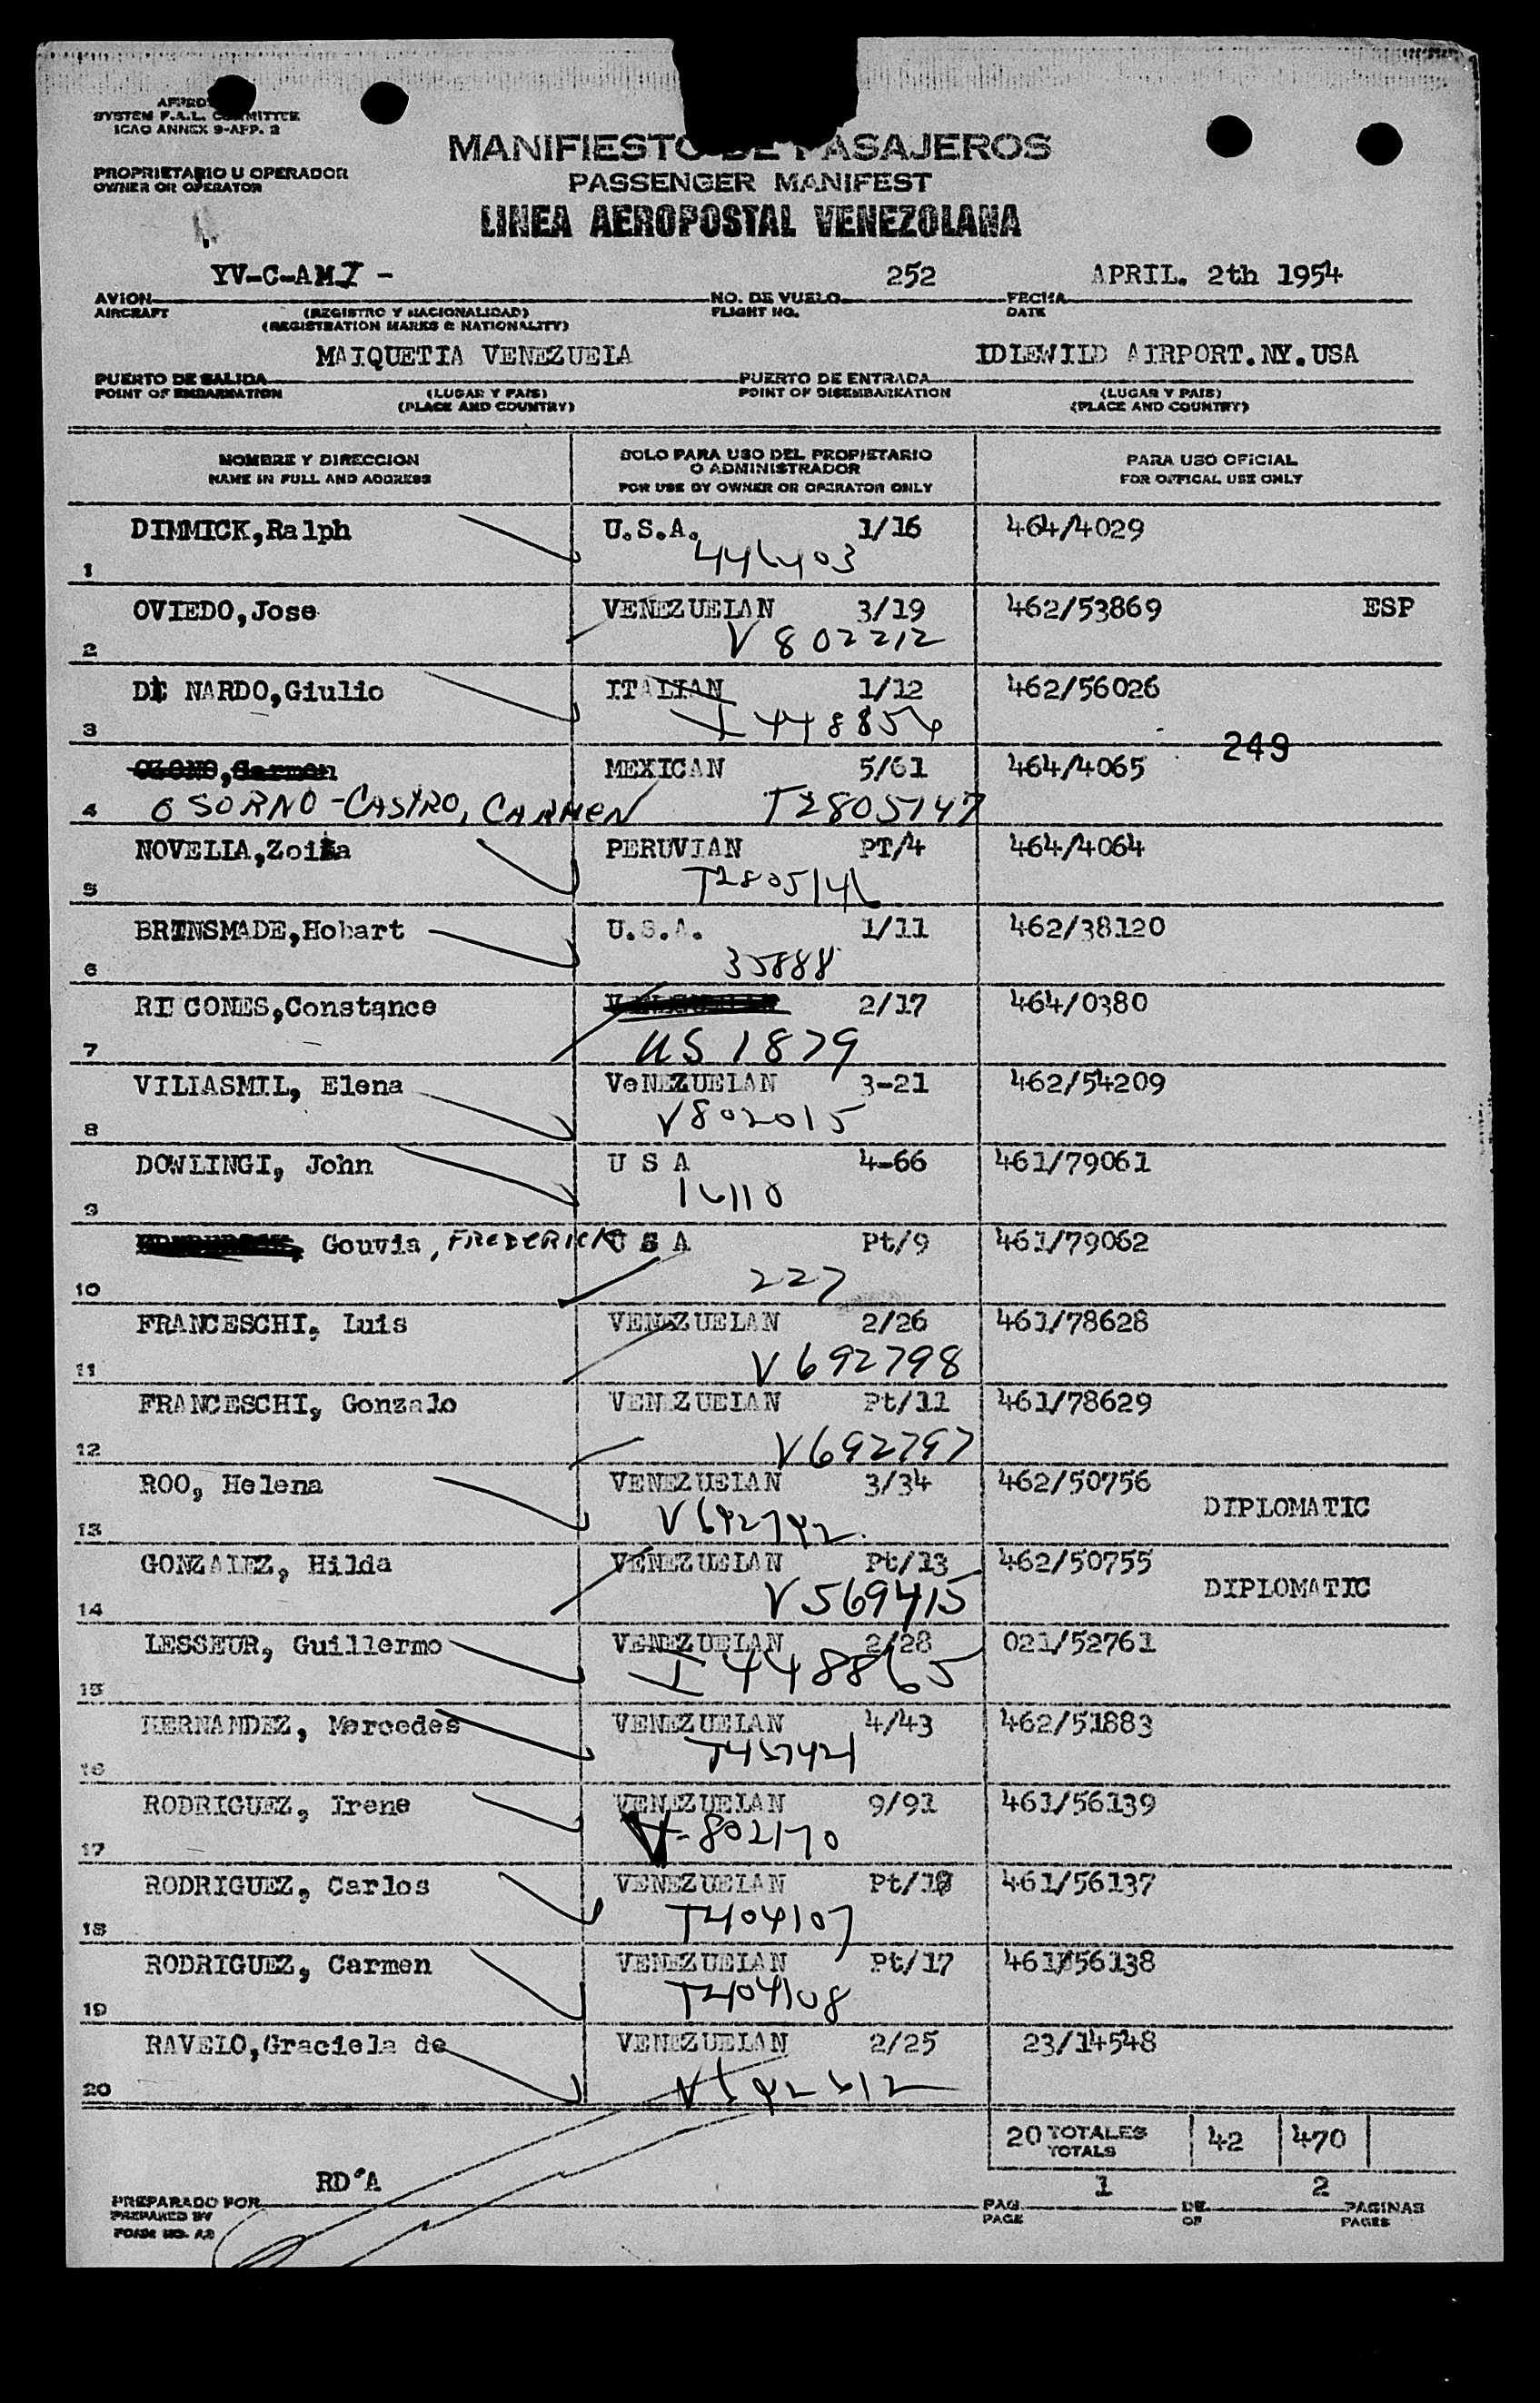 SYSTEM F.A.L. COMMITTEE
ICAO ANNEX 9-APP. 2
MANIFIESTO DE PASAJEROS
PROPRIETARIO U OPERADOR
OWNER OR OPERATOR
PASSENGER MANIFEST
LINEA AEROPOSTAL VENEZOLANA
YV-C-AMI - 252 APRIL. 2th 1954
AVION NO. DE VUELO FECHA
AIRCRAFT (REGISTRO Y NACIONALIDAD) FLIGHT NO. DATE
(REGISTRATION MARKS & NATIONALITY)
MAIQUETIA VENEZUELA IDLEWILD AIRPORT.NY.USA
PUERTO DE SALIDA PUERTO DE ENTRADA
POINT OF EMBARKATION (LUGAR Y PAIS) POINT OF DISEMBARKATION (LUGAR Y PAIS)
(PLACE AND COUNTRY) (PLACE AND COUNTRY)
NOMBRE Y DIRECCION SOLO PARA USO DEL PROPIETARIO PARA USO OFICIAL
O ADMINISTRADOR
NAME IN FULL AND ADDRESS FOR USE BY OWNER OR OPERATOR ONLY FOR OFFICAL USE ONLY
DIMMICK,Ralph U.S.A. 1/16 464/4029
1 446403
OVIEDO,Jose VENEZUELAN 3/19 462/53869 ESP
2 V 802212
DI NARDO,Giulio ITALIAN 1/12 462/56026
3 I 448854
249
MEXICAN 5/61 464/4065
4 OSORNO-CASTRO, CARMEN T2805147
NOVELLA,Zoila PERUVIAN PT/4 464/4064
5 T2805146
BRINSMADE,Hobart U.S.A. 1/11 462/38120
6 35888
RINCONES,Constance 2/17 464/0380
7 US 1879
VILLASMIL, Elena VeNEZUELAN 3-21 462/54209
8 V802015
DOWLINGI, John U S A 4-66 461/79061
9 16110
Gouvia, FREDERICK U S A Pt/9 461/79062
10 227
FRANCESCHI, Luis VENEZUELAN 2/26 461/78628
11 V692798
FRANCESCHI, Gonzalo VENEZUELAN Pt/11 461/78629
12 V692797
ROO, Helena VENEZUELAN 3/34 462/50756
13 V692792 DIPLOMATIC
GONZALEZ, Hilda VENEZUELAN Pt/13 462/50755
14 V569415 DIPLOMATIC
LESSEUR, Guillermo VENEZUELAN 2/28 021/52761
15 I 448865
HERNANDEZ, Mercedes VENEZUELAN 4/43 462/51883
16 T457421
RODRIGUEZ, Irene VENEZUELAN 9/91 461/56139
17 V-802170
RODRIGUEZ, Carlos VENEZUELAN Pt/18 461/56137
18 T404107
RODRIGUEZ, Carmen VENEZUELAN Pt/17 461/56138
19 T404108
RAVELO,Graciela de VENEZUELAN 2/25 23/14548
20 V692612
20 TOTALES 42 470
TOTALS
RD'A 1 2
PREPARADO POR PAG DE PAGINAS
PREPARED BY PAGE OF PAGES
FORM NO. A2